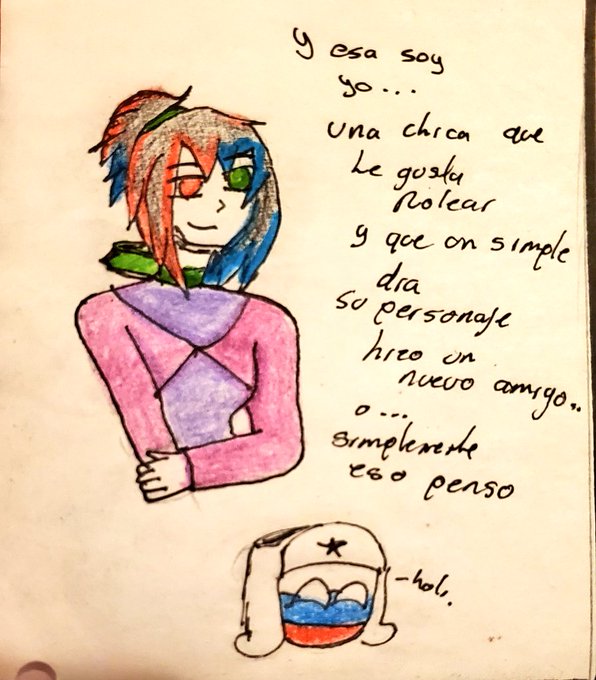 Y esa soy
yo...
una chica que
le gusta
Rolear
y que un simple
dia
su personaje
hizo un
nuevo amigo..
o...
simplemente
eso penso
-hola.